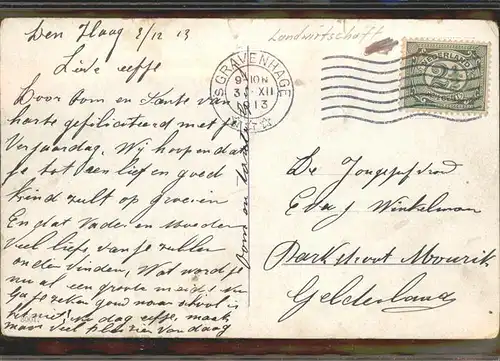 Den Haag 3/12 13
Landwirtschaft
Lieve
Door oom en Tante van
harte gefeliciteerd met je
Verjaardag. Wij hopen dat
je tot een lief en goed
kind zult op groeien
En dat Vader en Moeder
veel liefs van je zullen
onder vinden, Wat word je
nu al een groote meid
Ga je zeker gauw naar school is
het niet, nu dag maak
maar veel plezier van daag
Oom en Tante
'S GRAVENHAGE
9-10N
3 XII
1913
NEDERLAND
2½
De Jongejufvrouw
Eva J Winkelman
Parkstraat Maurik
Gelderland